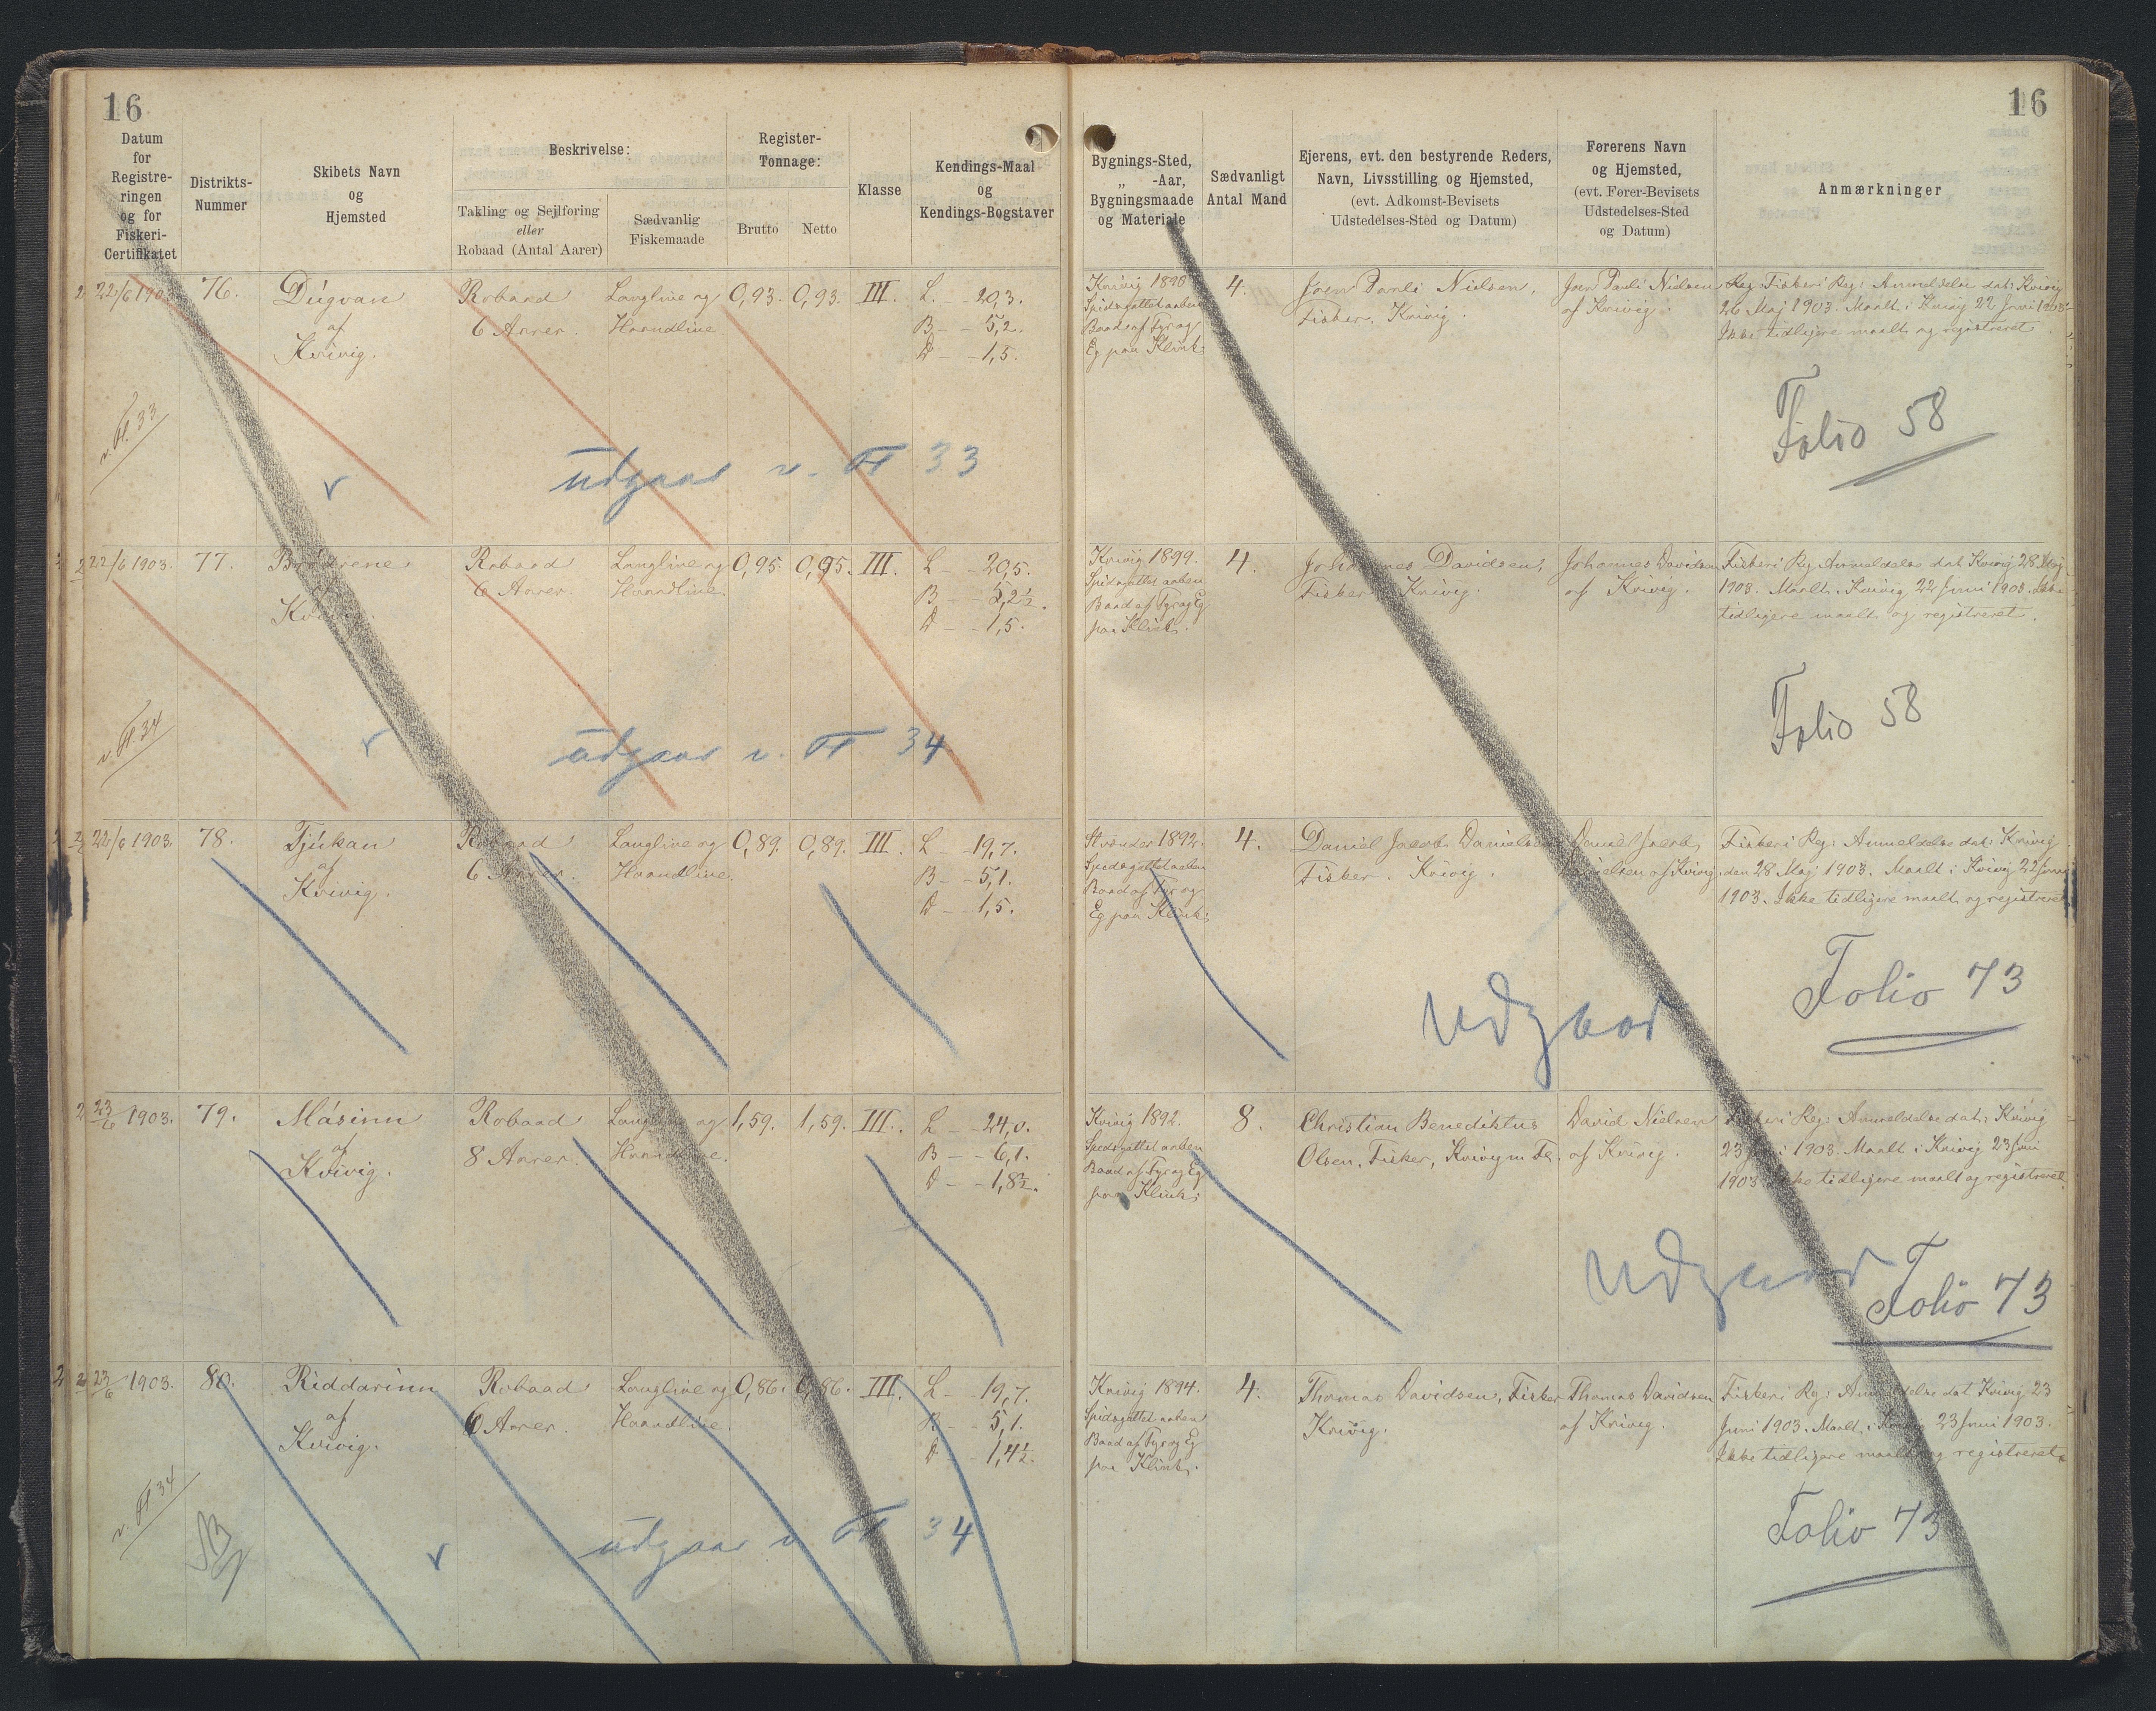 16
16
Datum
for
Registre-
ringen
og for
Fiskeri-
Certifikatet
Distrikts-
Nummer
Skibets Navn
og
Hjemsted
Beskrivelse:
Takling og Sejlføring
eller
Robaad (Antal Aarer)
Sædvanlig
Fiskemaade
Register-
Tonnage:
Brutto
Netto
Klasse
Kendings-Maal
og
Kendings-Bogstaver
Bygnings-Sted,
„ -Aar,
Bygningsmaade
og Materiale
Sædvanligt
Antal Mand
Ejerens, evt. den bestyrende Reders,
Navn, Livsstilling og Hjemsted,
(evt. Adkomst-Bevisets
Udstedelses-Sted og Datum)
Førerens Navn
og Hjemsted,
(evt. Fører-Bevisets
Udstedelses-Sted
og Datum)
Anmærkninger
22/6 1903
76.
Dúgvan
af
Kvivig.
Robaad
6 Aarer.
Langline og
Haandline
0,93.
0,93.
III.
L. - 20,3.
B - - 5,2.
D - - 1,5.
Kvivig 1898
Spidsgattet aaben
Baad af Fyr og
Eg paa Klink.
4.
Joen Pauli Nielsen,
Fisker. Kvivig.
Joen Pauli Nielsen
af Kvivig.
Fiskeri Reg: Anmeldelse dat: Kvivig
26 Maj 1903. Maalt i Kvivig 22 Juni 1903.
Ikke tidligere maalt og registreret.
Folio 58
v. 33
udgaar v. 33
22/6 1903.
77.
Brødrene
af
Kvivig.
Robaad
6 Aarer.
Langline og
Haandline.
0,95
0,95.
III.
L - 20,5.
B - - 5,2½.
D - - 1,5.
Kvivig 1899.
Spidsgattet aaben
Baad af Fyr og Eg
paa Klink.
4.
Johannes Davidsen,
Fisker. Kvivig.
Johannes Davidsen
af Kvivig.
Fiskeri Reg: Anmeldelse dat Kvivig 28 Maj
1903. Maalt i Kvivig 22 Juni 1903. Ikke
tidligere maalt og registreret.
Folio 58
v. 34
udgaar v. 34
22/6 1903.
78.
Tjúkan
af
Kvivig.
Robaad
6 Aarer.
Langline og
Haandline.
0,89.
0,89.
III.
L - 19,7.
B - - 5,1.
D - - 1,5.
1892.
Spidsgattet aaben
Baad af Fyr og
Eg paa Klink.
4.
Daniel Jacob Danielsen
Fisker. Kvivig.
Daniel Jacob
Danielsen af Kvivig
Fiskeri Reg: Anmeldelse dat: Kvivig
den 28 Maj 1903. Maalt i Kvivig 22 Juni
1903. Ikke tidligere maalt og registreret
udgaar
Folio 73
23/6 1903.
79.
Másinn
af
Kvivig.
Robaad
8 Aarer.
Langline og
Haandline.
1,59.
1,59.
III.
L - 24,0.
B - - 6,1.
D - - 1,8½.
Kvivig 1892.
Spidsgattet aaben
Baad af Fyr og Eg
paa Klink.
8.
Christian Benediktus
Olsen, Fisker, Kvivig m Fl.
David Nielsen
af Kvivig.
Fiskeri Reg: Anmeldelse dat: Kvivig
23 Juni 1903. Maalt i Kvivig 23 Juni
1903. Ikke tidligere maalt og registreret.
udgaar
Folio 73
23/6 1903.
80.
Riddarinn
af
Kvivig.
Robaad
6 Aarer.
Langline og
Haandline.
0,86.
0,86.
III.
L - 19,7.
B - - 5,1.
D - - 1,4½.
Kvivig 1894.
Spidsgattet aaben
Baad af Fyr og Eg
paa Klink.
4.
Thomas Davidsen, Fisker
Kvivig.
Thomas Davidsen
af Kvivig.
Fiskeri Reg: Anmeldelse dat Kvivig 23
Juni 1903. Maalt i Kvivig 23 Juni 1903.
Ikke tidligere maalt og registreret.
v. 34
udgaar v. 34
Folio 73